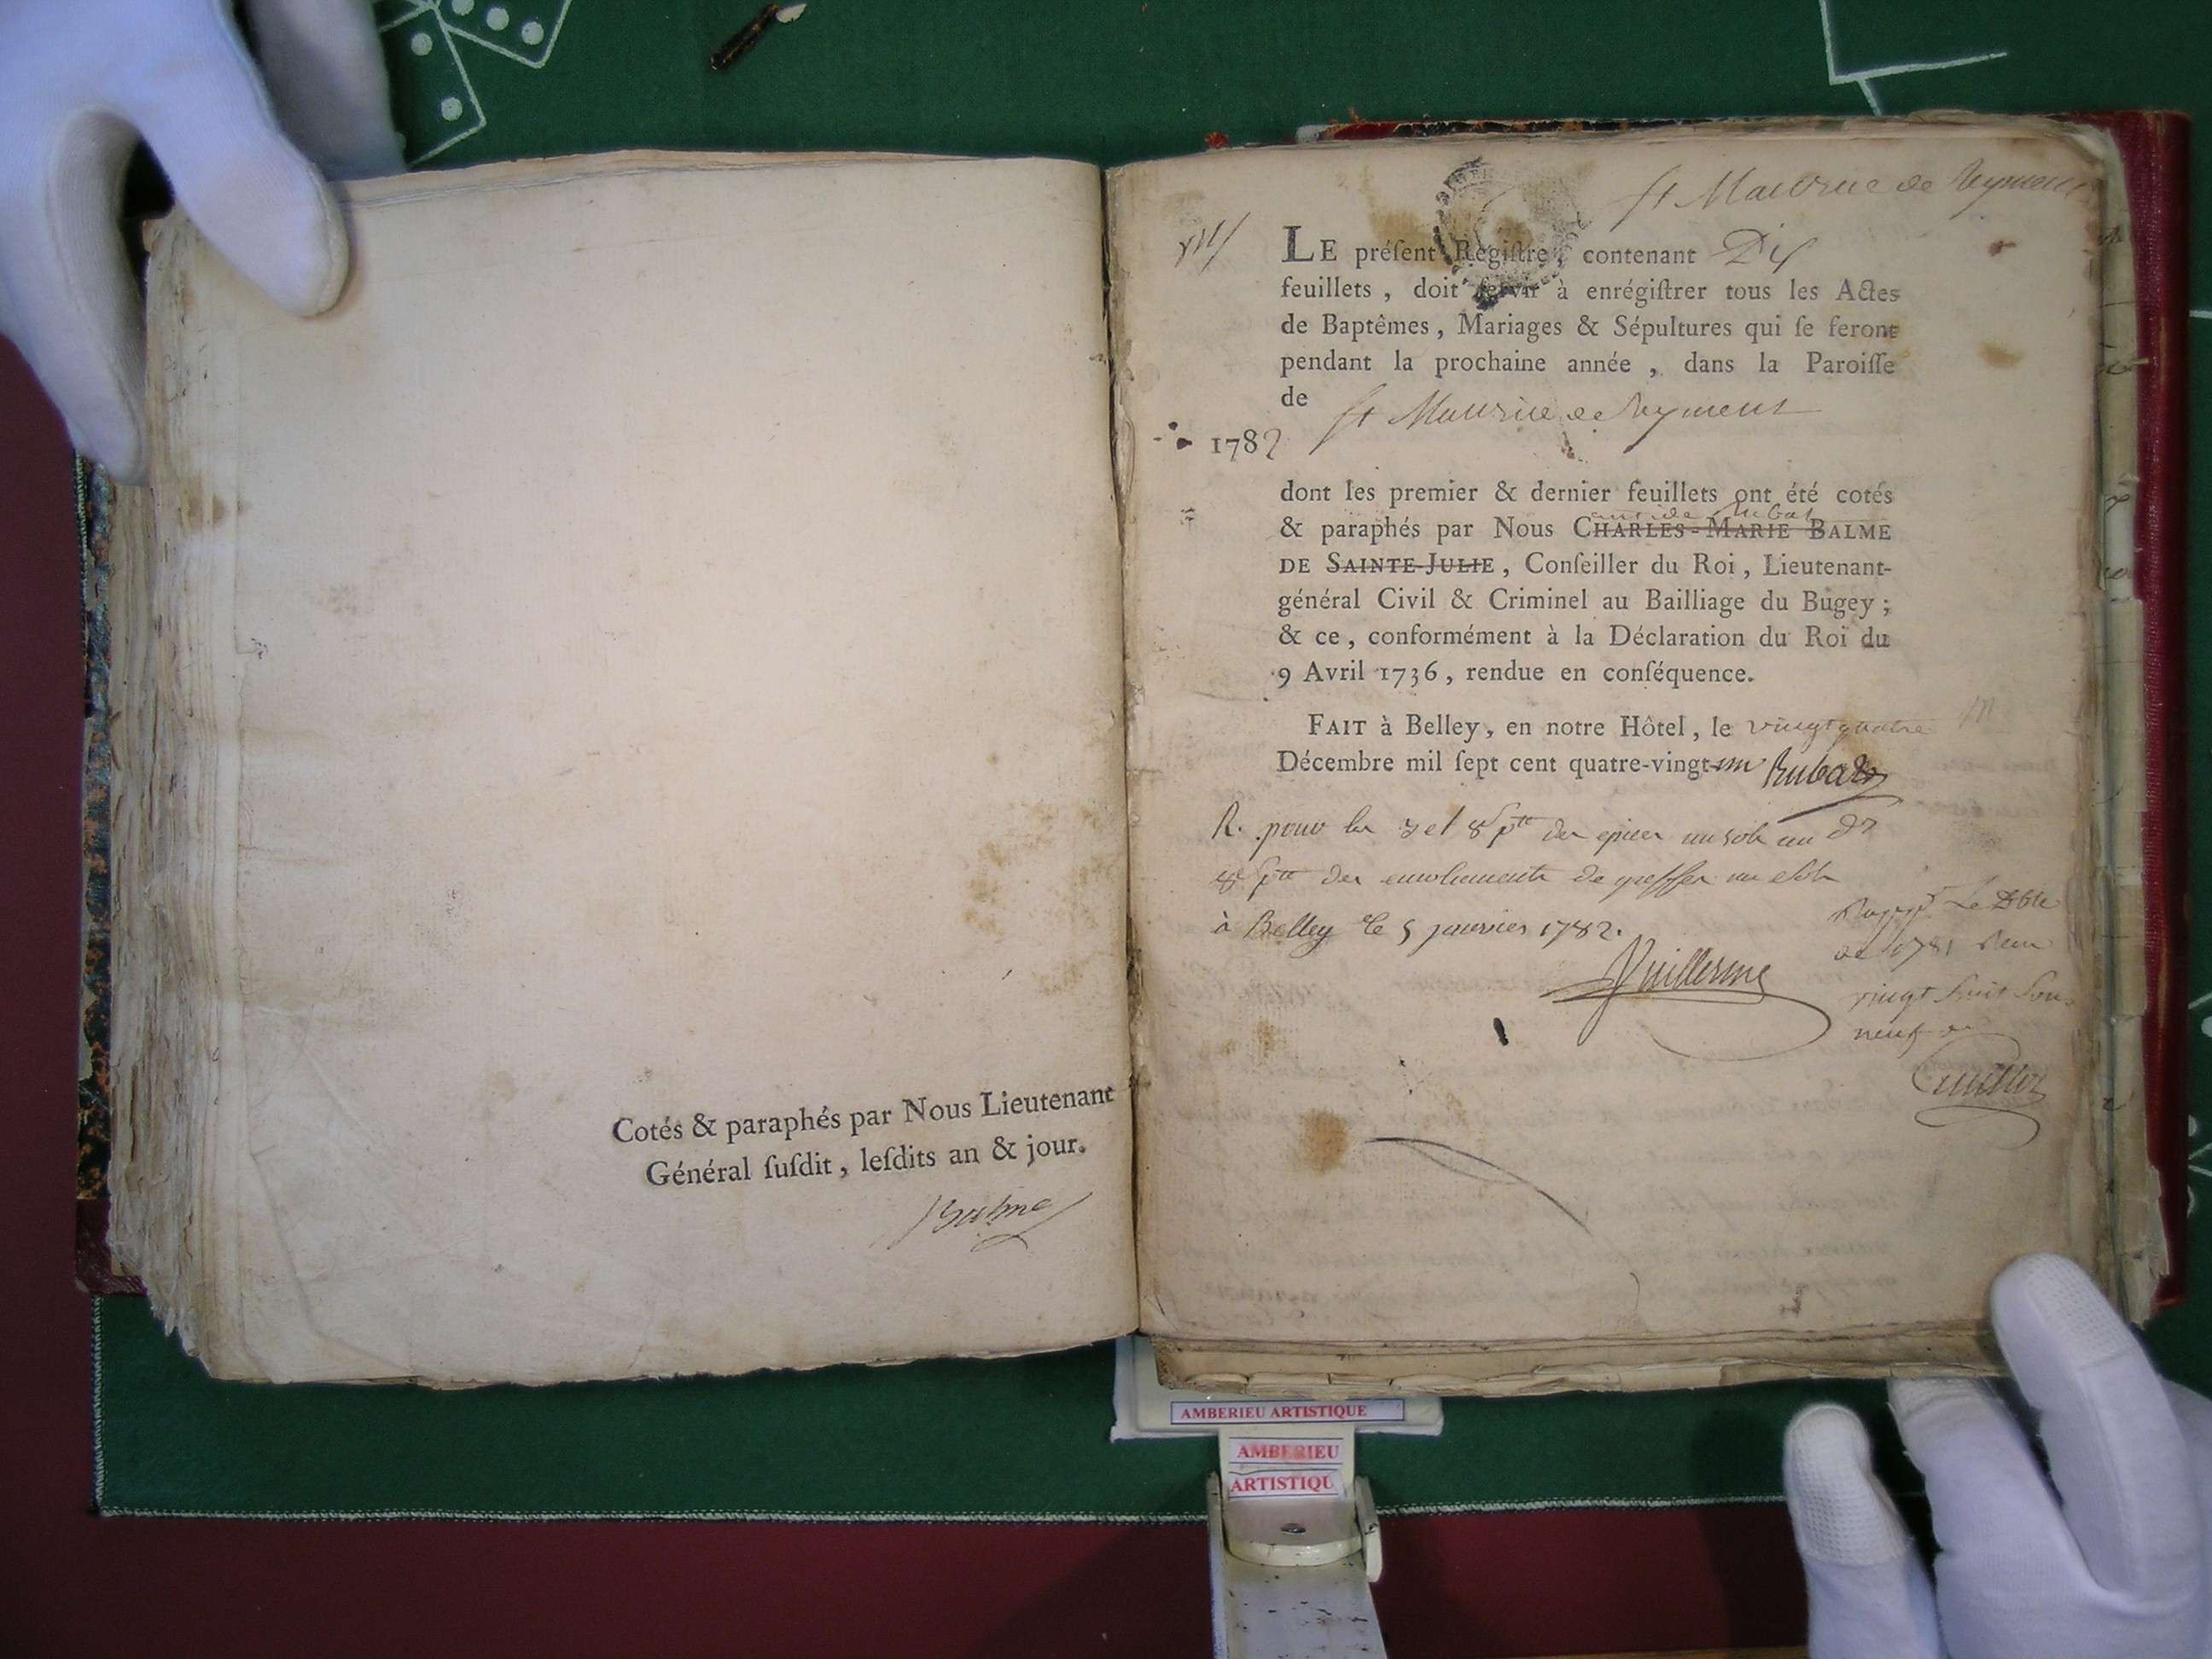 Cotés & paraphés par Nous Lieutenant
Général ſuſdit, leſdits an & jour.
Balme
St Maurice de Reymens
LE préſent Regiſtre, contenant Dix
feuillets, doit ſervir à enrégiſtrer tous les Actes
de Baptêmes, Mariages & Sépultures qui ſe feront
pendant la prochaine année, dans la Paroiſſe
de St Maurice de Reymens
1782
dont les premier & dernier feuillets ont été cotés
& paraphés par Nous CHARLES-MARIE BALME
DE SAINTE-JULIE, Conſeiller du Roi, Lieutenant-
général Civil & Criminel au Bailliage du Bugey;
& ce, conformément à la Déclaration du Roi du
9 Avril 1736, rendue en conſéquence.
FAIT à Belley, en notre Hôtel, le vingt quatre
Décembre mil ſept cent quatre-vingt-un Rubat
R. pour les 3 et 8 s p
à Belley le 5 janvier 1782.
Vuillerme
de 1781
vingt huit sous
neuf
AMBERIEU ARTISTIQUE
AMBERIEU
ARTISTIQU